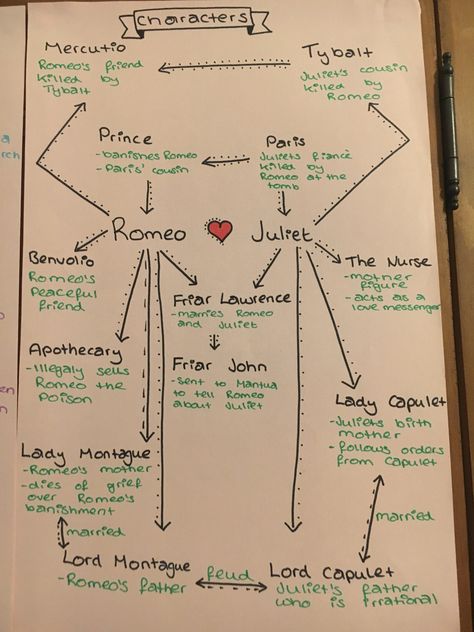 characters
Mercutio
Romeo's friend
killed by
Tybalt
Tybalt
Juliet's cousin
killed by
Romeo
Prince
-banishes Romeo
-Paris' cousin
Paris
Juliets fiancè
killed by
Romeo at the
tomb
Romeo
Juliet
Benvolio
Romeo's
peaceful
friend
The Nurse
-mother
figure
-acts as a
love messenger
Friar Lawrence
-marries Romeo
and Juliet
Apothecary
-Illegaly sells
Romeo the
poison
Friar John
-sent to Mantua
to tell Romeo
about Juliet
Lady Capulet
-Juliets birth
mother
-follows orders
from Capulet
Lady Montague
-Romeo's mother
-dies of grief
over Romeo's
banishment
married
married
Lord Montague
-Romeo's father
feud
Lord Capulet
Juliet's father
who is irrational